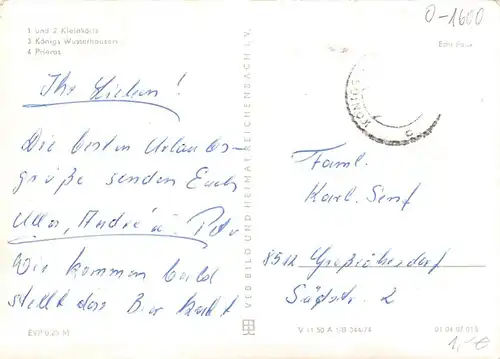 1 und 2 Kleinköris
3 Königs Wusterhausen
4 Prieros
Ihr Lieben!
Die besten Urlaubs-
grüße senden Euch
Ulla, André u. Peter
Wir kommen bald
stellt das Bier kalt
EVP 0,20 M
VEB BILD UND HEIMAT REICHENBACH I. V.
0-1600
Echt Foto
KÖNIGS
Faml.
Karl. Senf
8512 Großröhrsdorf
Südstr. 2
V 11 50 A 1/B 044/74
01 04 07 015
1,- €